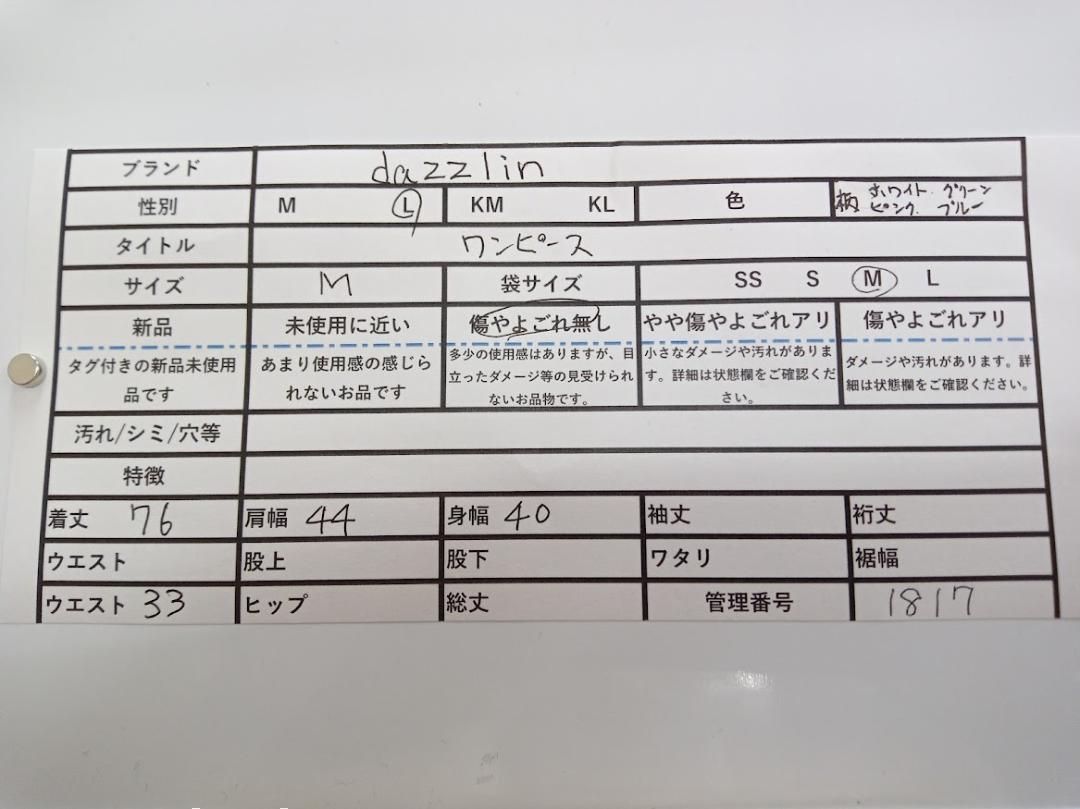 ブランド dazzlin
性別 M L KM KL 色 柄 ホワイト. グリーン
ピンク. ブルー
タイトル ワンピース
サイズ M 袋サイズ SS S M L
新品 未使用に近い 傷やよごれ無し やや傷やよごれアリ 傷やよごれアリ
タグ付きの新品未使用
品です
あまり使用感の感じら
れないお品です
多少の使用感はありますが、目
立ったダメージ等の見受けられ
ないお品物です。
小さなダメージや汚れがありま
す。詳細は状態欄をご確認くだ
さい。
ダメージや汚れがあります。詳
細は状態欄をご確認ください。
汚れ/シミ/穴等
特徴
着丈 76 肩幅 44 身幅 40 袖丈 裄丈
ウエスト 股上 股下 ワタリ 裾幅
ウエスト 33 ヒップ 総丈 管理番号 1817